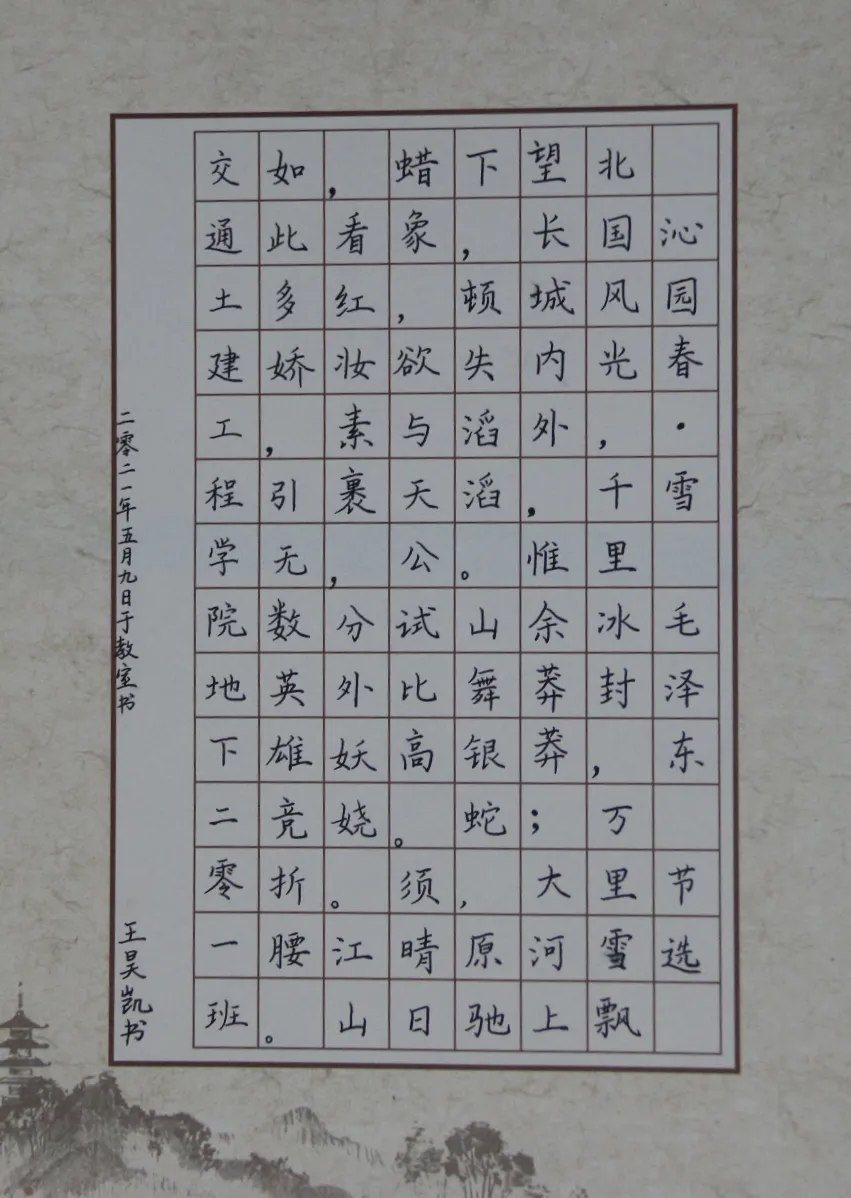 沁园春·雪 毛泽东 节选
北国风光，千里冰封，万里雪飘
望长城内外，惟余莽莽；大河上
下，顿失滔滔。山舞银蛇，原驰
蜡象，欲与天公试比高。须晴日
，看红妆素裹，分外妖娆。江山
如此多娇，引无数英雄竞折腰。
交通土建工程学院地下二零一班
二零二一年五月九日于教室书 王昊凯书